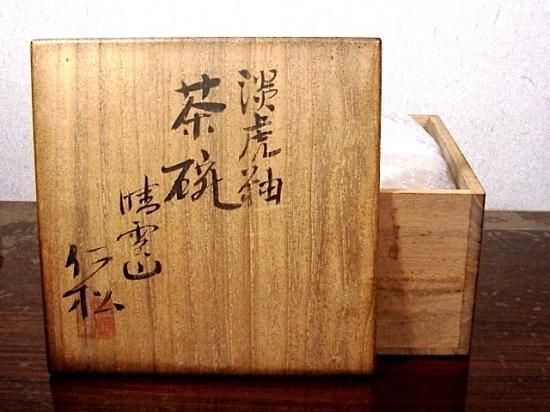 澒虎釉
茶碗
晴雲山
仁松